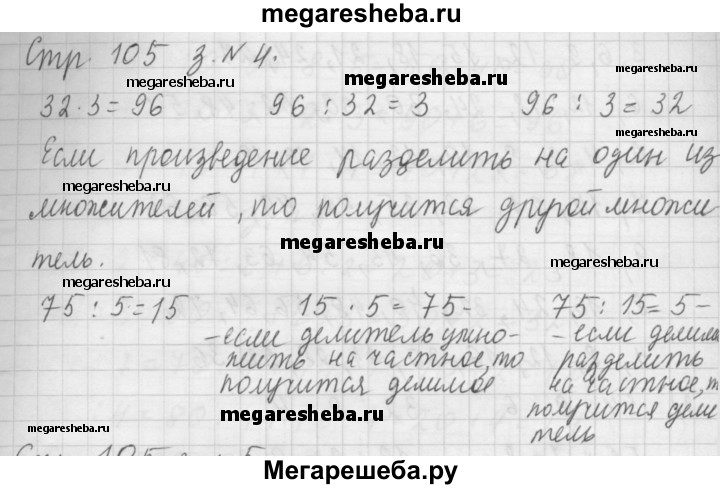 megaresheba.ru
Стр. 105 з. N 4.
megaresheba.ru megaresheba.ru megaresheba.ru
32 · 3 = 96 96 : 32 = 3 96 : 3 = 32
megaresheba.ru
Если произведение разделить на один из
megaresheba.ru megaresheba.ru
множителей, то получится другой множи
megaresheba.ru megaresheba.ru
тель.
megaresheba.ru megaresheba.ru
75 : 5 = 15 15 · 5 = 75 - 75 : 15 = 5 -
- если делитель умно- - если делим
жить на частное, то разделить
получится делимое на частное, т
megaresheba.ru megaresheba.ru получится дели
тель
Мегарешеба.ру